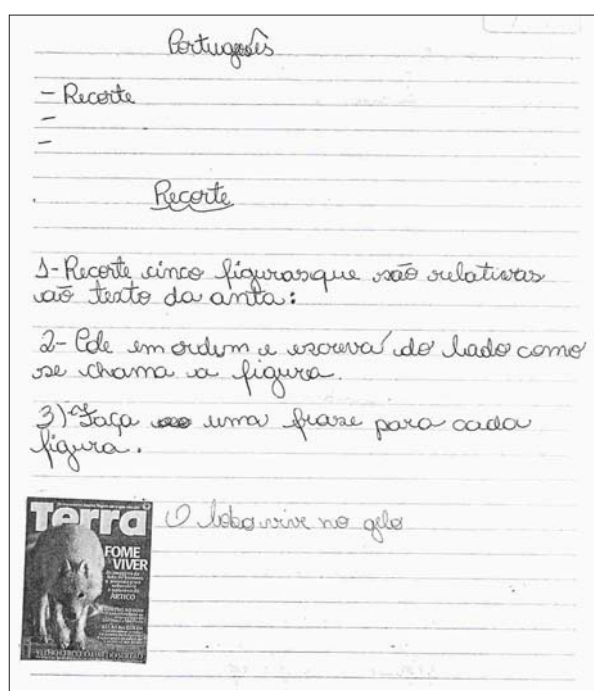 Português
- Recorte
-
-
Recorte
1- Recorte cinco figuras que são relativas
aõ texto da anta:
2- Cole em ordem e escreva do lado como
se chama a figura.
3) Faça uma frase para cada
figura.
Terra
O lobo vive no gelo
FOME
VIVER
ÁRTICO